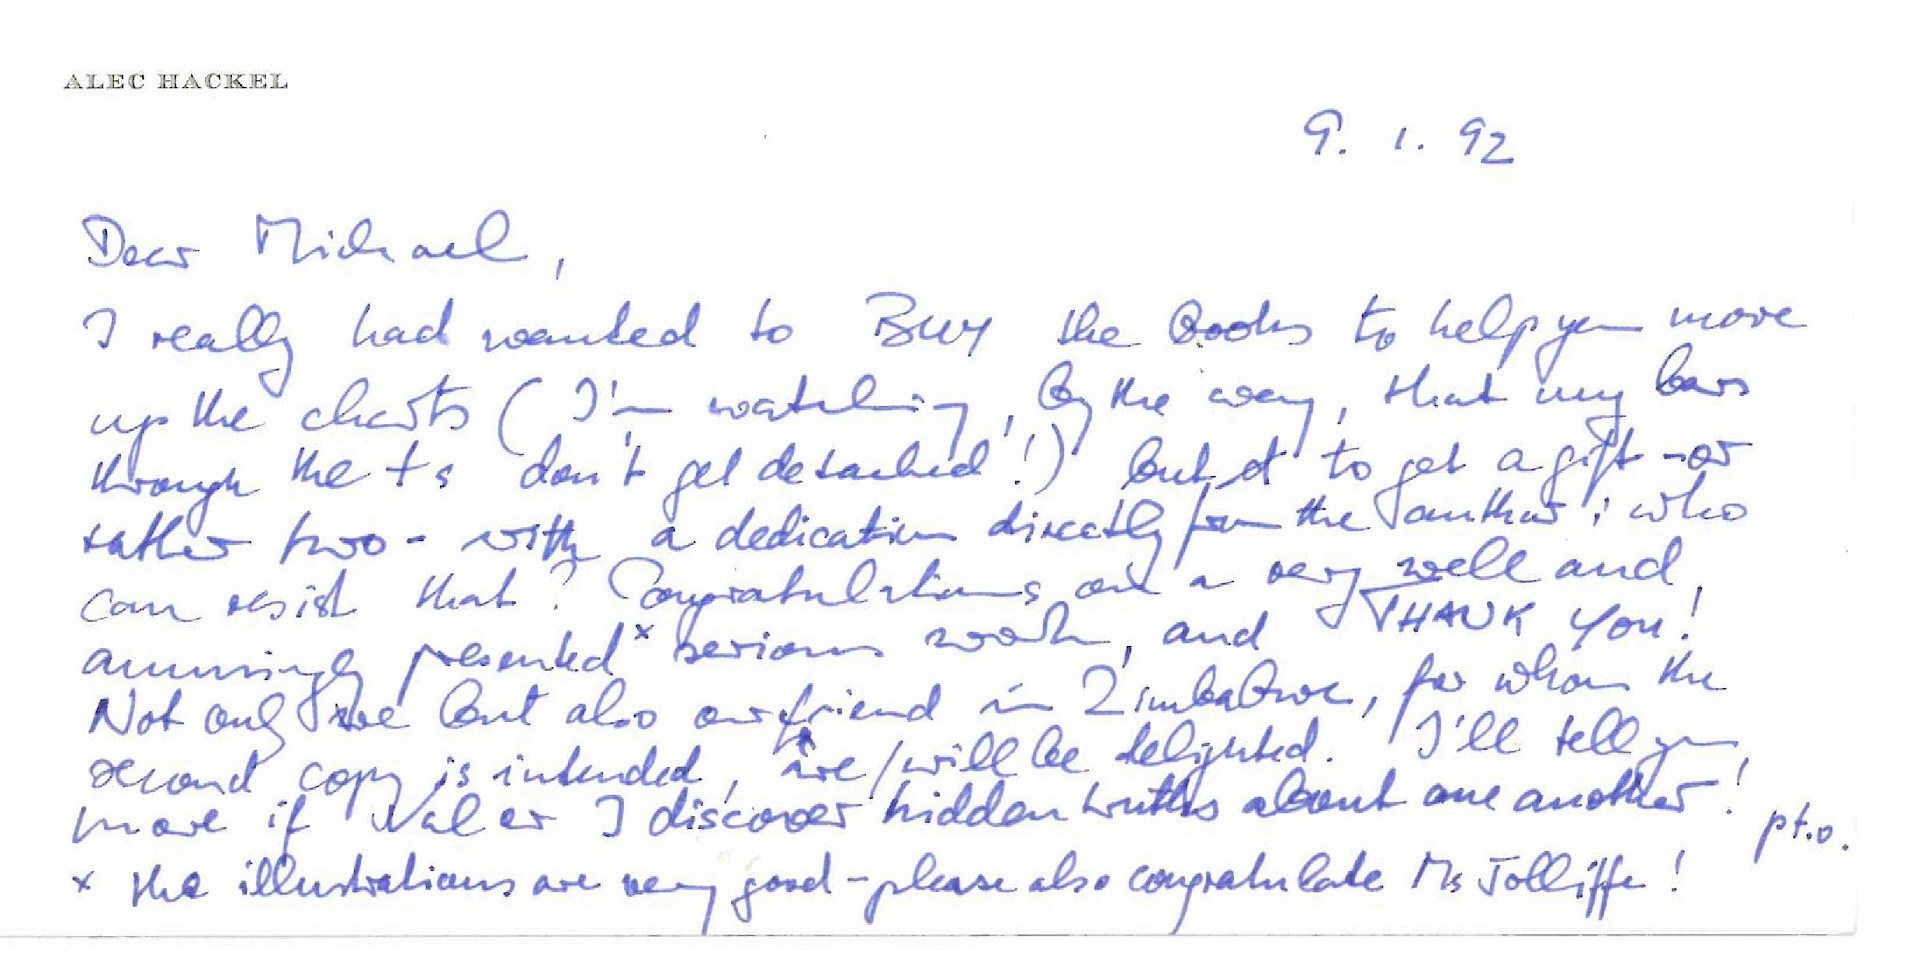 ALEC HACKEL
9. 1. 92
Dear Michael,
I really had wanted to BUY the books to help you move
up the charts (I'm watching, by the way, that my bars
through the ts don't get detached!) but to get a gift - or
rather two - with a dedication directly from the author: who
can resist that? Congratulations on a very well and
amusingly presented* serious work, and THANK YOU!
Not only we but also our friend in Zimbabwe, for whom the
second copy is intended, are/will be delighted. I'll tell you
more if Val or I discover hidden truths about one another!
p.t.o.
* the illustrations are very good - please also congratulate Ms Jolliffe!